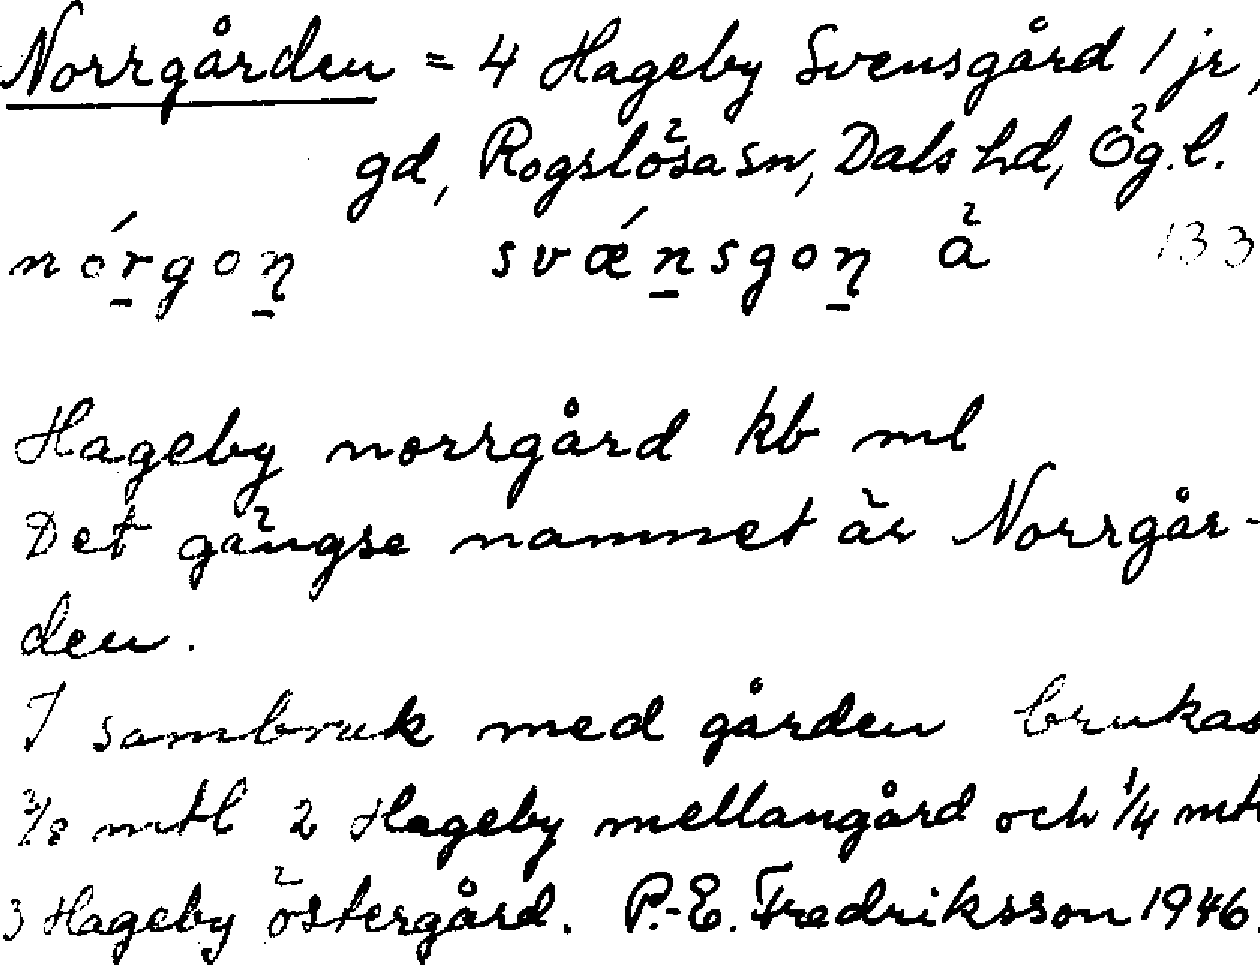 Norrgården = 4 Hageby Svensgård 1 jr,
gd, Rogslösa sn, Dals hd, Ög.l.
nórgon svǽnsgon ä 133
Hageby norrgård kb ml
Det gängse namnet är Norrgår-
den.
I sambruk med gården brukas
3/8 mtl 2 Hageby mellangård och 1/4 mtl
3 Hageby östergård. P.-E. Fredriksson 1946.